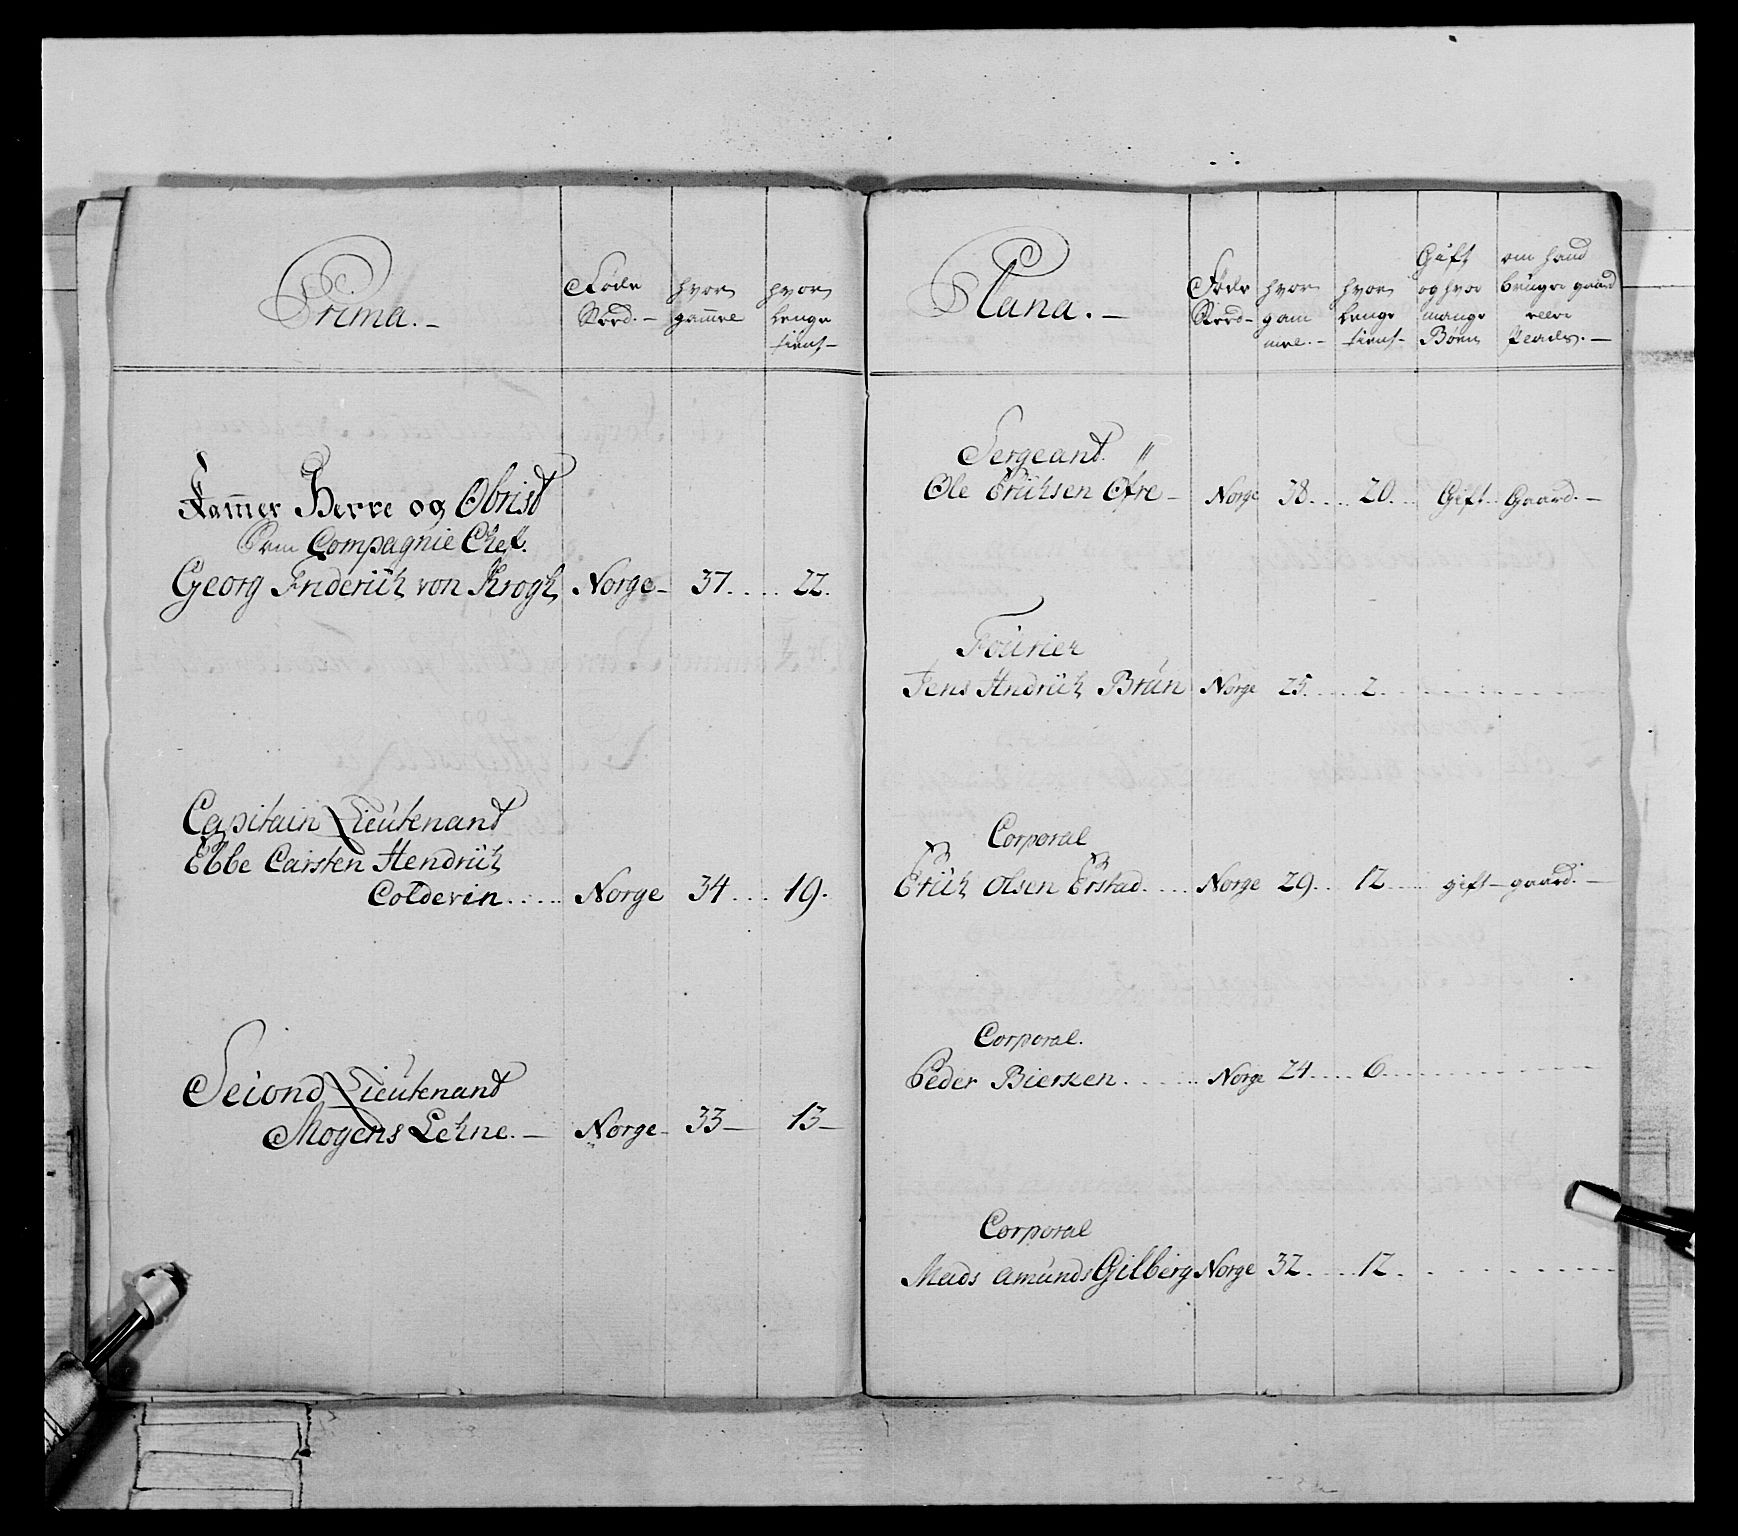 Prima.
Føde Sted.
hvor gammel
hvor lenge tient
Kammer Herre og Obrist
Som Compagnie Chef.
Georg Friderich von Krogh Norge 37 22.
Capitain Lieutenant
Ebbe Carsten Hendrich
Coldevin Norge 34 19.
Second Lieutenant
Mogens Lehne. Norge 33 13
Plana.
Føde Sted
hvor gammel.
hvor lenge tient
Gift og hvor mange Børn
om hand bruger gaard eller Plads.
Sergeant.
Ole Erichsen Øfre Norge 38 20. Gift Gaard.
Fourier
Jens Andrich Brun Norge 25 2
Corporal
Erich Olsen Erstad Norge 29 12 gift gaard.
Corporal.
Peder Biersen Norge 24 6
Corporal
Mads Amunds Gilberg Norge 32 12